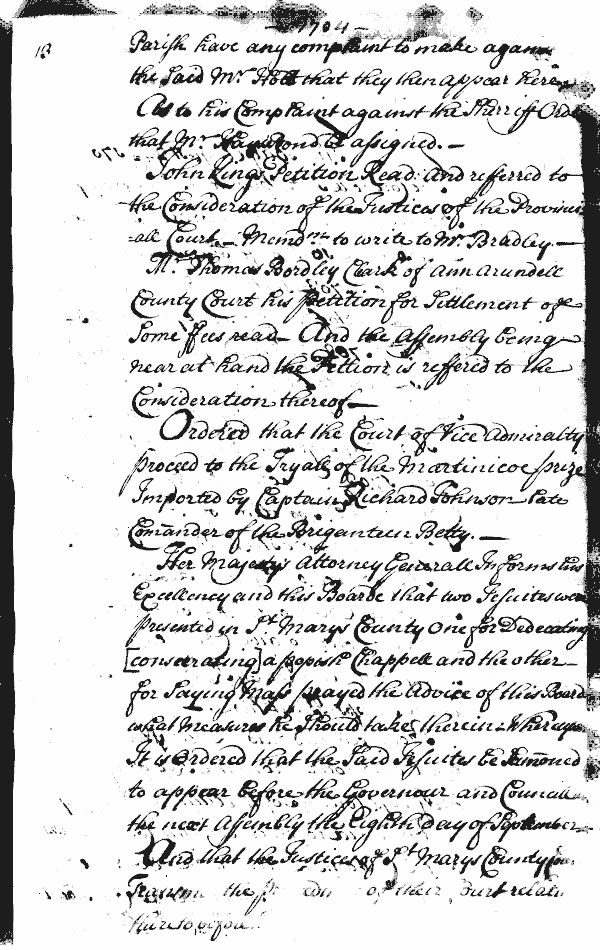 1704
13
Parish have any complaint to make against
the said Mr. Holt that they then appear here
As to his Complaint against the Sherriff Ord
that Mr. Hammond be assigned.—
John Kings Petition Read and referred to
the Consideration of the Justices of the Provinci
-all Court.— Memdm to write to Mr. Bradley.—
Mr. Thomas Bordley Clark of Ann Arundell
County Court his Petition for Settlement of
some fees read— And the Assembly being
near at hand the Pettion is reffered to the
Consideration thereof—
Ordered that the Court of Vice Admiralty
proceed to the Tryale of the Martinicoe prize
Imported by Captain Richard Johnson late
Comander of the Briganteen Betty.—
Her Majestys Attorney Generall Informs his
Excellency and this Boarde that two Jesuites were
presented in St. Marys County One for Dedecating
[consecrating] a popish Chappell and the other
for Saying Mass prayed the Advice of this Board
what measures he should take therein Whereupon
It is Ordered that the Said Jesuites be Sumoned
to appear before the Governour and Councill
the next Assembly the Eighth day of September
And that the Justices of St. Marys County
Transm the of their Court relate
thereto before